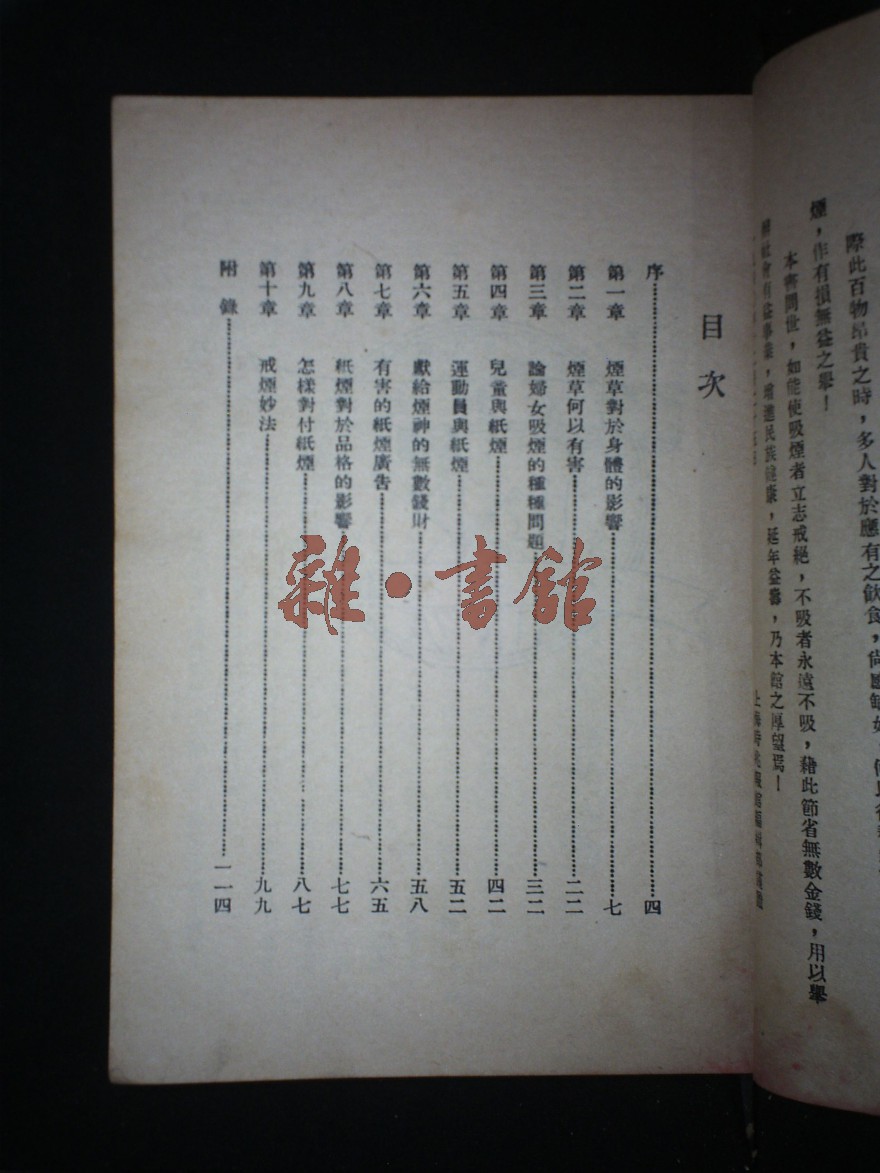 際此百物昂貴之時，多人對於應有之飲食，尚
煙，作有損無益之舉！
本書問世，如能使吸煙者立志戒絕，不吸者永遠不吸，藉此節省無數金錢，用以舉
辦社會有益事業，增進民族健康，延年益壽，乃本館之厚望焉！
目次
序 四
第一章 煙草對於身體的影響 七
第二章 煙草何以有害 二二
第三章 論婦女吸煙的種種問題 三二
第四章 兒童與紙煙 四二
第五章 運動員與紙煙 五二
第六章 獻給煙神的無數錢財 五八
第七章 有害的紙煙廣告 六五
第八章 紙煙對於品格的影響 七七
第九章 怎樣對付紙煙 八七
第十章 戒煙妙法 九九
附錄 一一四
雜·書館